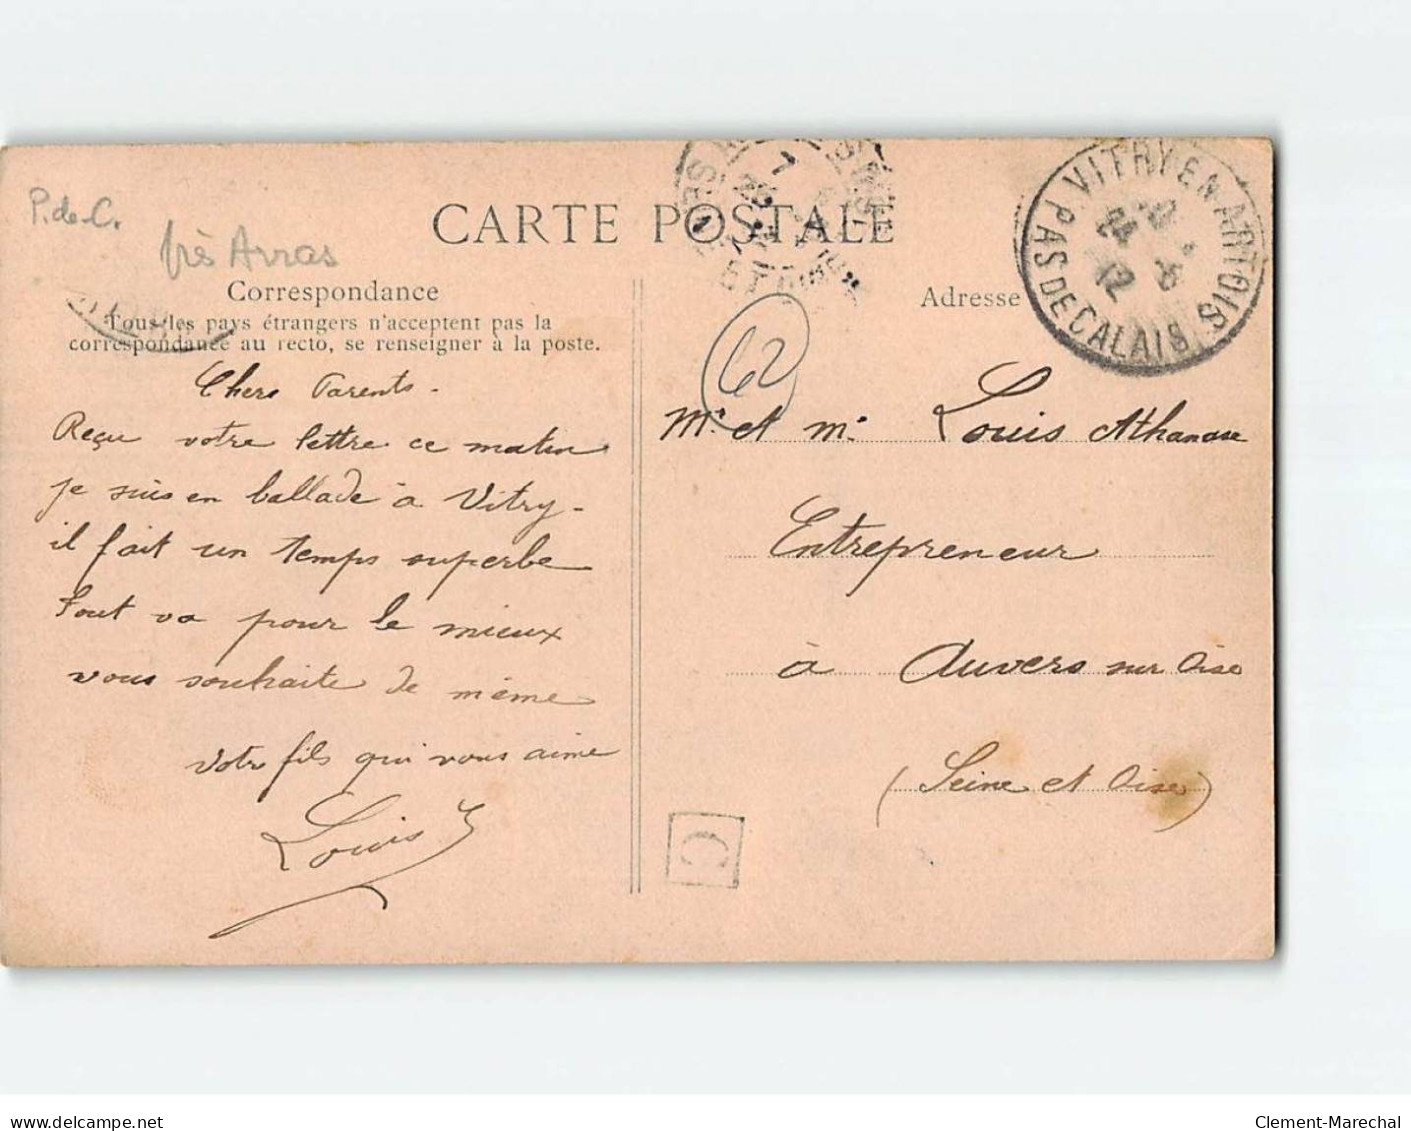 P. de C.
près Arras
CARTE POSTALE
Correspondance
Tous les pays étrangers n'acceptent pas la
correspondance au recto, se renseigner à la poste.
Chers Parents -
Reçu votre lettre ce matin
je suis en ballade à Vitry -
il fait un temps superbe
Tout va pour le mieux
vous souhaite de même
Votre fils qui vous aime
Louis
62
Adresse
VITRY EN ARTOIS
PAS DE CALAIS
24
12
Mr et Me Louis Athanase
Entrepreneur
à Auvers sur Oise
(Seine et Oise)
C
www.delcampe.net
Clement-Marechal